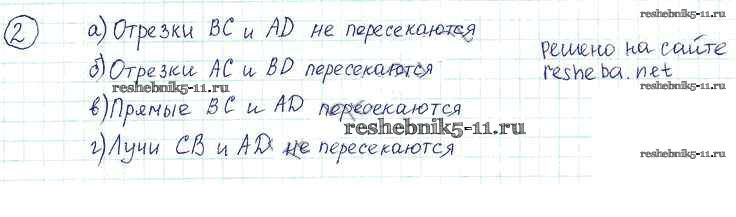 reshebnik5-11.ru
2 а) Отрезки BC и AD не пересекаются
решено на сайте
resheba.net
б) Отрезки AC и BD пересекаются
reshebnik5-11.ru
reshebnik5-11.ru
в) Прямые BC и AD пересекаются
reshebnik5-11.ru
г) Лучи CB и AD не пересекаются
reshebnik5-11.ru